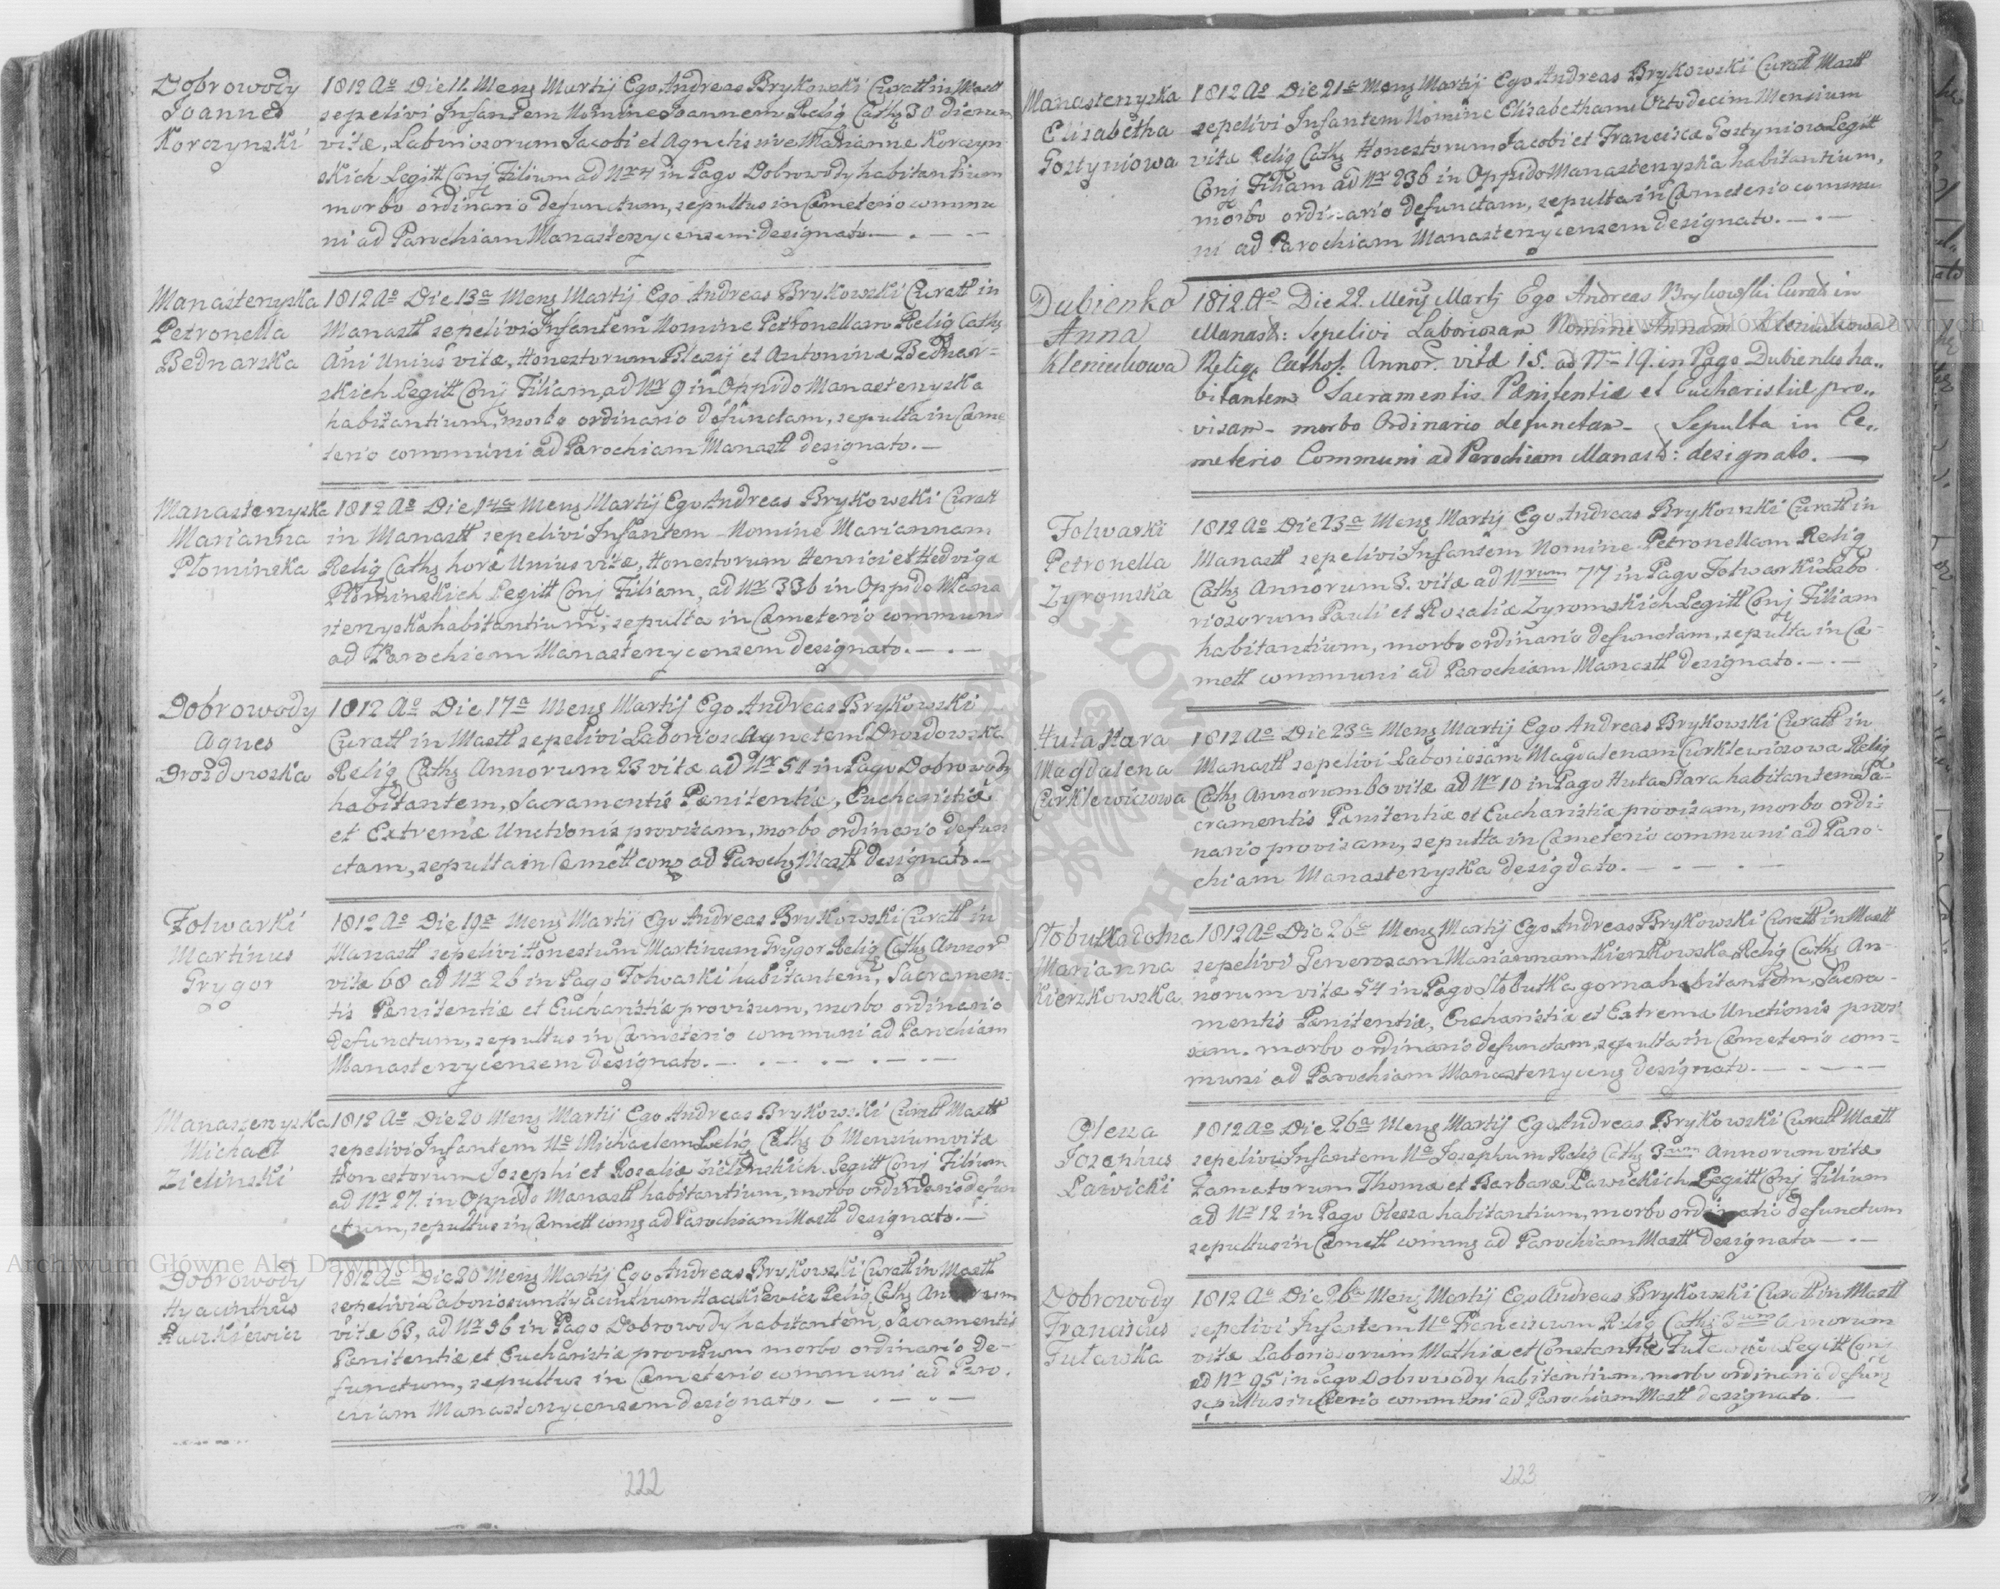 Dobrowody
Joannes
Korczynski
1812 Ao Die 11 Mens Martij Ego Andreas Brykowski Curatt in Mastt
sepelivi Infantem Nomine Joannem Relig Caths 30 dierum
vitæ, Laboriosorum Jacobi et Agnetis sive Marianne Korczyn
skich Legitt Conj Filium ad Nr 4 in Pago Dobrowody habitantium
morbo ordinario defunctum, sepultus in Cæmeterio commu
ni ad Parochiam Manasterycensem designato.
Manasterzyska
Petronella
Bednarska
1812 Ao Die 13a Mens Martij Ego Andreas Brykowski Curatt in
Manastt sepelivi Infantem Nomine Petronellam Relig Caths
Ani Unius vitæ, Honestorum Blasij et Antoninæ Bednar=
skich Legitt Conj Filiam, ad Nr 9 in Oppido Manasterzyska
habitantium, morbo ordinario defunctam, sepulta in Cæme
terio communi ad Parochiam Manastt designato.
Manasterzyska
Marianna
Płominska
1812 Ao Die 14a Mens Martij Ego Andreas Brykowski Curatt
in Manastt sepelivi Infantem Nomine Mariannam
Relig Caths horæ Unius vitæ, Honestorum Henrici et Hedvige
Płominskich Legitt Conj Filiam, ad Nr 336 in Oppido Mana
sterzyska habitantium, sepulta in Cæmeterio commun
ad Parochiam Manasterycensem designato.
Dobrowody
Agnes
Drozdowska
1812 Ao Die 17a Mens Martij Ego Andreas Brykowski
Curatt in Mastt sepelivi Laboriosa Agnetem Drozdowska
Relig Caths Annorum 23 vitæ ad Nr 54 in Pago Dobrowody
habitantem, Sacramentis Pænitentiæ, Eucharistiæ
et Extremæ Unctionis provisam, morbo ordinario defun
ctam, sepulta in Cæmett coms ad Parochs Mastt designato.
Folwarki
Martinus
Grygor
1812 Ao Die 19a Mens Martij Ego Andreas Brykowski Curatt in
Manastt sepelivi Honestum Martinum Grygor Relig Caths Annor
vitæ 68 ad Nr 26 in Pago Folwarki habitantem, Sacramen=
tis Pænitentiæ et Eucharistiæ provisum, morbo ordinario
defunctum, sepultus in Cæmeterio communi ad Parochiam
Manasterycensem designato.
Manaszerzyska
Michael
Zielinski
1812 Ao Die 20 Mens Martij Ego Andreas Brykowski Curatt Mastt
sepelivi Infantem Ne Michaelem Relig Caths 6 Mensium vitæ
Honestorum Josephi et Rosaliæ Zielinskich Legitt Conj Filium
ad Nr 27 in Oppido Manastt habitantium, morbo ordinario defun
ctum, sepultus in Cæmett coms ad Parochiam Mastt designato.
Dobrowody
Hyacinthus
Haukiewicz
1812 Ao Die 20 Mens Martij Ego Andreas Brykowski Curatt in Mastt
sepelivi Laboriosum Hyacinthum Relig Caths Annorum
vitæ 63, ad Nr 96 in Pago Dobrowody habitantem, Sacramentis
Pænitentiæ et Eucharistiæ provisum morbo ordinario de=
functum, sepultus in Cæmeterio communi ad Paro
chiam Manasterycensem designato.
222
Manasterzyska
Elisabetha
Gostyniowa
1812 Ao Die 21a Mens Martij Ego Andreas Brykowski Curatt Mastt
sepelivi Infantem Nomine Elisabetham Octodecim Mensium
vitæ Relig Caths Honestorum Jacobi et Franciscæ Gostyniow Legitt
Conj Filiam ad Nr 236 in Oppido Manasterzyska habitantium,
morbo ordinario defunctam, sepulta in Cæmeterio commu
ni ad Parochiam Manasterycensem designato.
Dubienko
Anna
Kleniukowa
1812. Ao Die 22. Mens Martj Ego Andreas Brykowski Curatt in
Manast: Sepelivi Laboriosam Nomine Annam Kleniukowa
Relig: Cathol: Annor. vitæ 15. ad Nr 19. in Pago Dubienko ha..
bitantem Sacramentis Pænitentiæ et Eucharistiæ pro..
visam morbo Ordinario defunctam Sepulta in Ce..
meterio Communi ad Parochiam Manast: designato.
Folwarki
Petronella
Zyromska
1812 Ao Die 23a Mens Martij Ego Andreas Brykowski Curatt in
Manastt sepelivi Infantem Nomine Petronellam Relig
Caths Annorum 3. vitæ ad Nrum 77 in Pago Folwarki Labo
riosorum Pauli et Rosaliæ Zyromskich Legitt Conj Filiam
habitantium, morbo ordinario defunctam, sepulta in Cæ-
mett communi ad Parochiam Manastt designato.
Huta Stara
Magdalena
Curklewiczowa
1812 Ao Die 23a Mens Martij Ego Andreas Brykowski Curatt in
Manastt sepelivi Laboriosam Magdalenam Curklewiczowa Relig
Caths Annorum 60 vitæ ad Nr 10 in Pago Huta Stara habitantem Sa-
cramentis Pænitentiæ et Eucharistiæ provisam, morbo ordi:
nario provisam, sepulta in Cæmeterio communi ad Paro-
chiam Manasterzyska desigdato.
Słobutka dolna
Marianna
Kierzkowska
1812 Ao Die 26a Mens Martij Ego Andreas Brykowski Curatt in Mastt
sepelivi Generosam Mariannam Kierzkowska Relig Caths An-
norum vitæ 54 in Pago Słobutka gorna habitantem Sacra-
mentis Pænitentiæ, Eucharistiæ et Extremæ Unctionis provi
sam. morbo ordinario defunctam, sepulta in Cæmeterio com-
muni ad Parochiam Manasterycens designato.
Olesza
Josephus
Ławicki
1812 Ao Die 26a Mens Martij Ego Andreas Brykowski Curatt Mastt
sepelivi Infantem Ne Josephum Relig Caths 3um Annorum vitæ
Famatorum Thomæ et Barbaræ Ławickich Legitt Conj Filium
ad Nr 12 in Pago Olesza habitantium, morbo ordinario defunctum
sepultus in Cæmett comms ad Parochiam Mastt designato
Dobrowody
Franciscus
Tuławka
1812 Ao Die 26a Mens Martij Ego Andreas Brykowski Curatt in Mastt
sepelivi Infantem Ne Franciscum Relig Caths 3um Annorum
vitæ Laboriosorum Mathiæ et Constantiæ Legitt Conj
ad Nr 95 in Pago Dobrowody habitantium, morbo ordinario defunc
sepultus in Cæterio communi ad Parochiam Mastt designato.
223
Archiwum Główne Akt Dawnych
Archiwum Główne Akt Dawnych